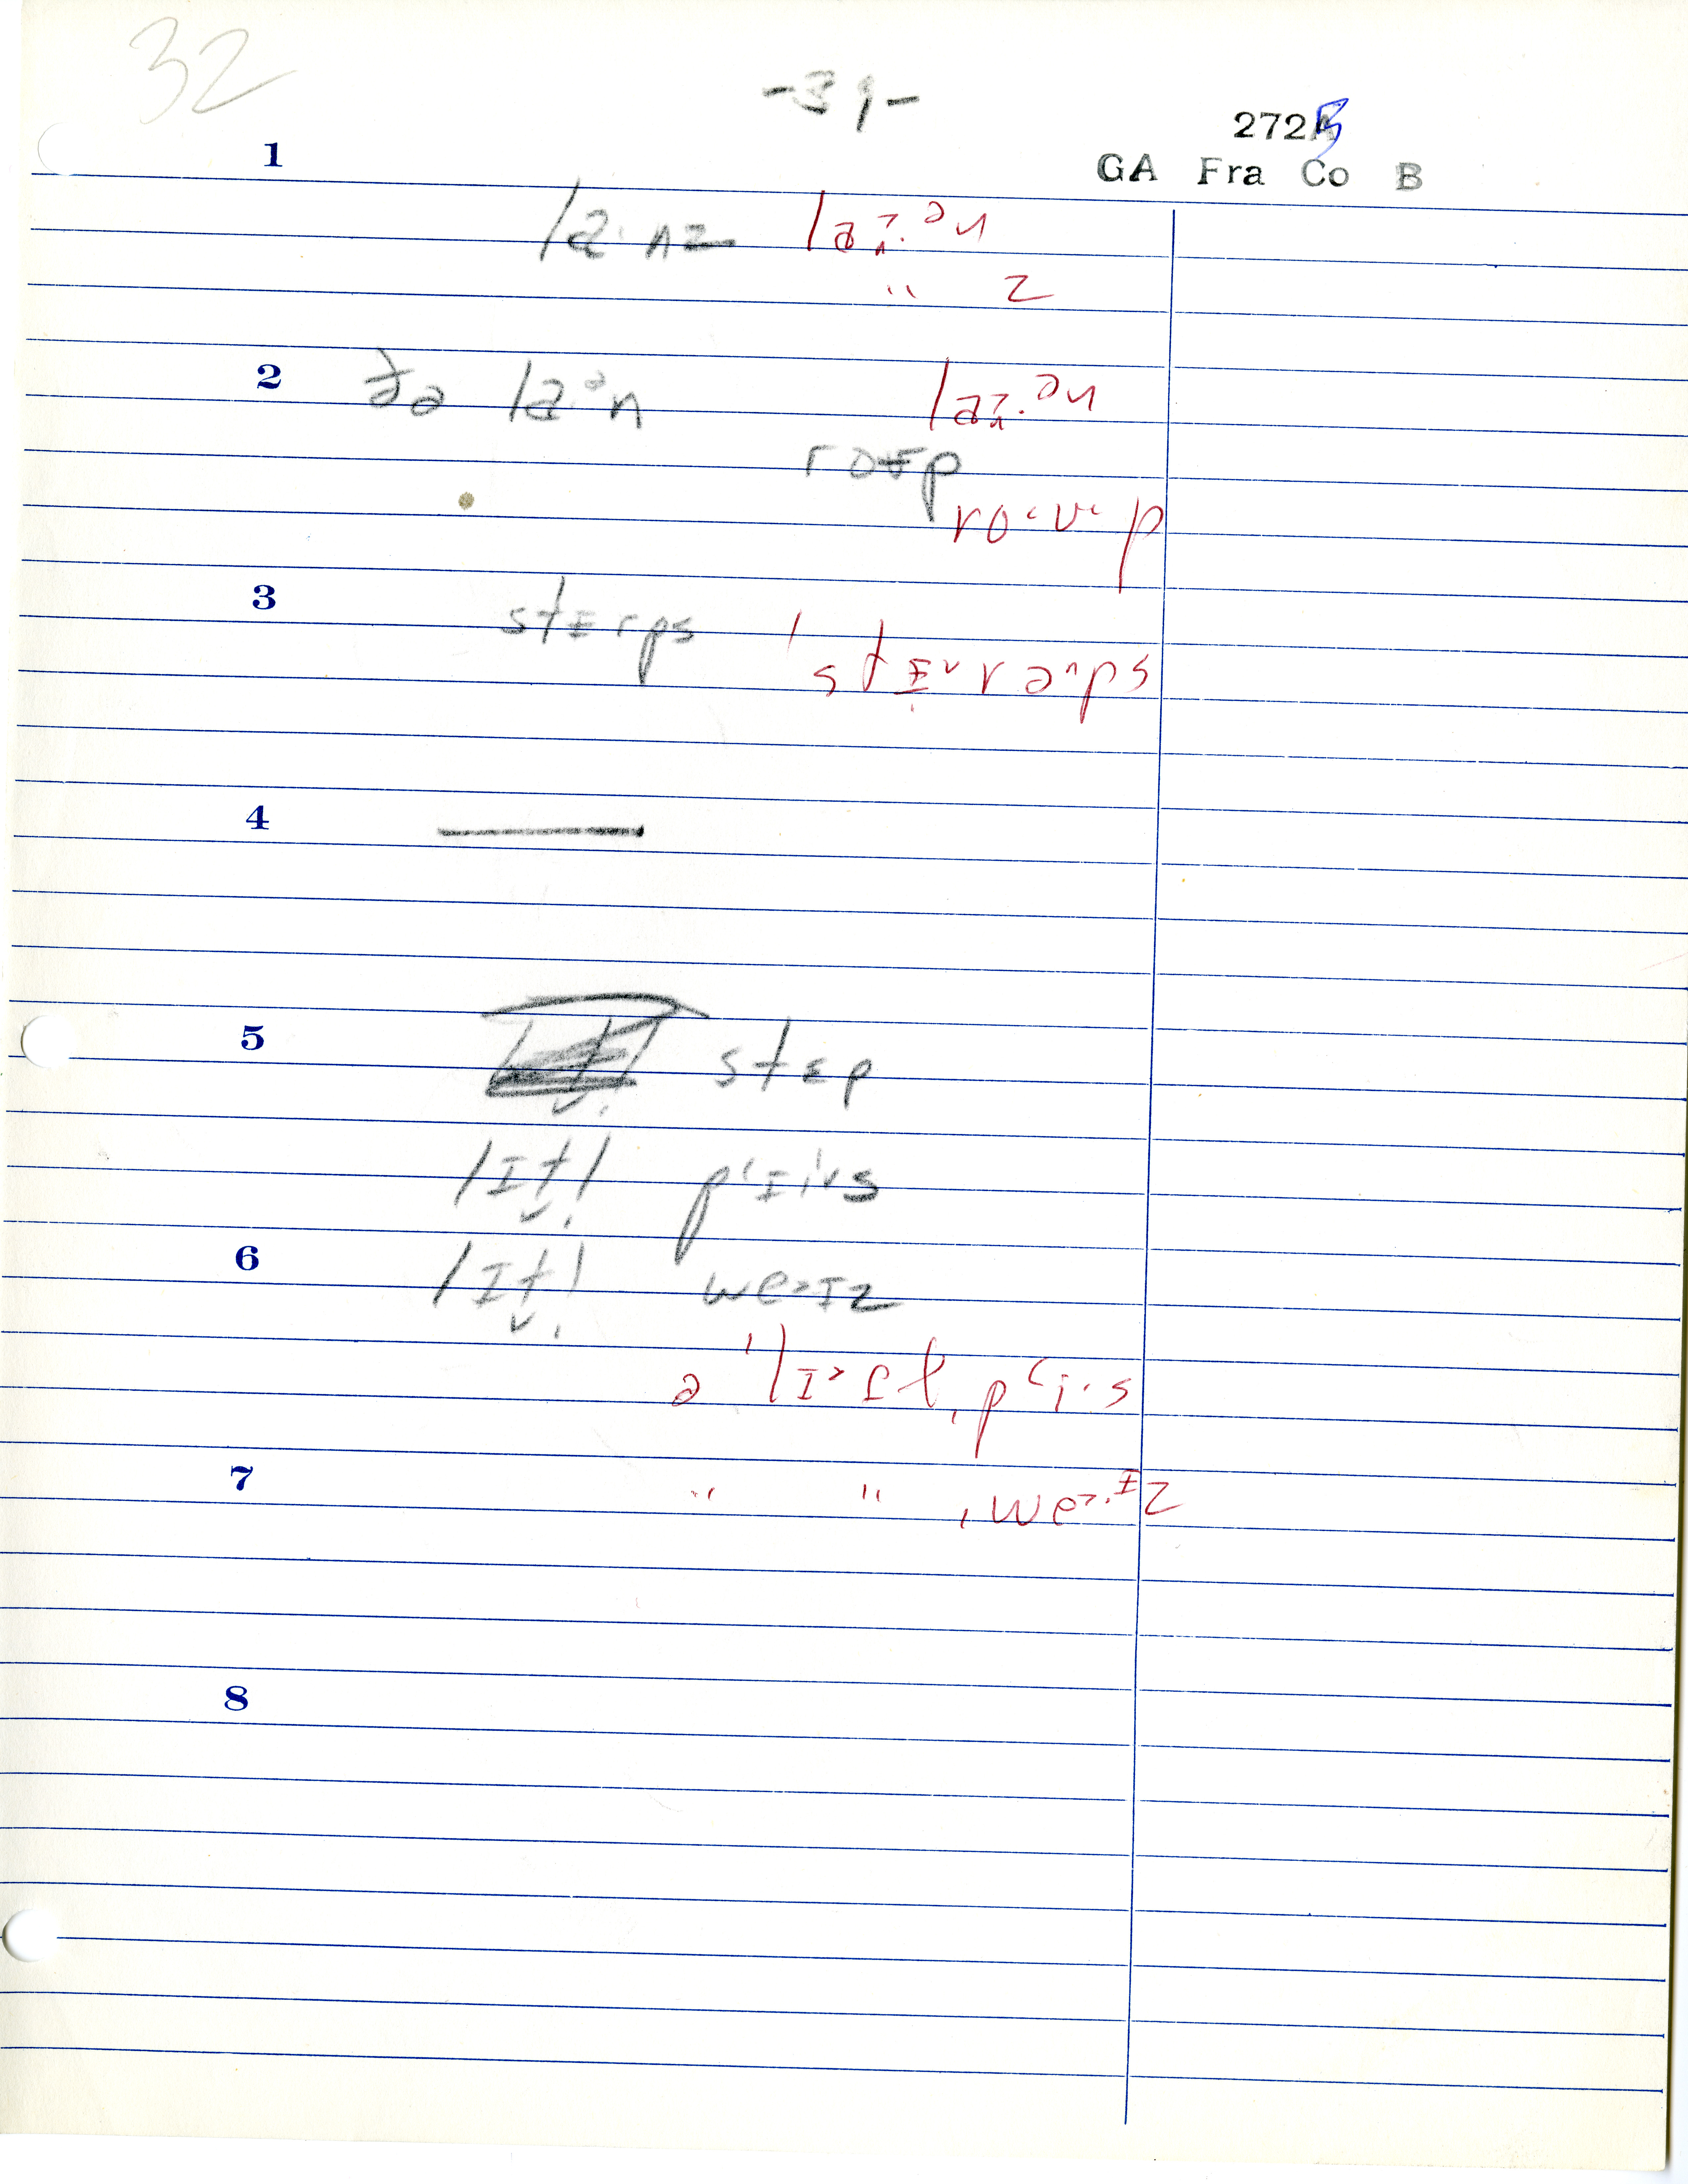 32
-31-
272B
GA Fra Co B
1
la·nz la>·ən
" z
2 ðə la·ən la>·ən
roʊp
ro‹ʊ·p
3 stɛrps 'stɛ˅rə^ps
4 —
5 stɛp
lɪt̬l̩ p‹ɪi˅s
6 lɪt̬l̩ we>ɪz
ə 'lɪ>tl ˌp‹i·s
7 " " ˌwe>·ɪz
8